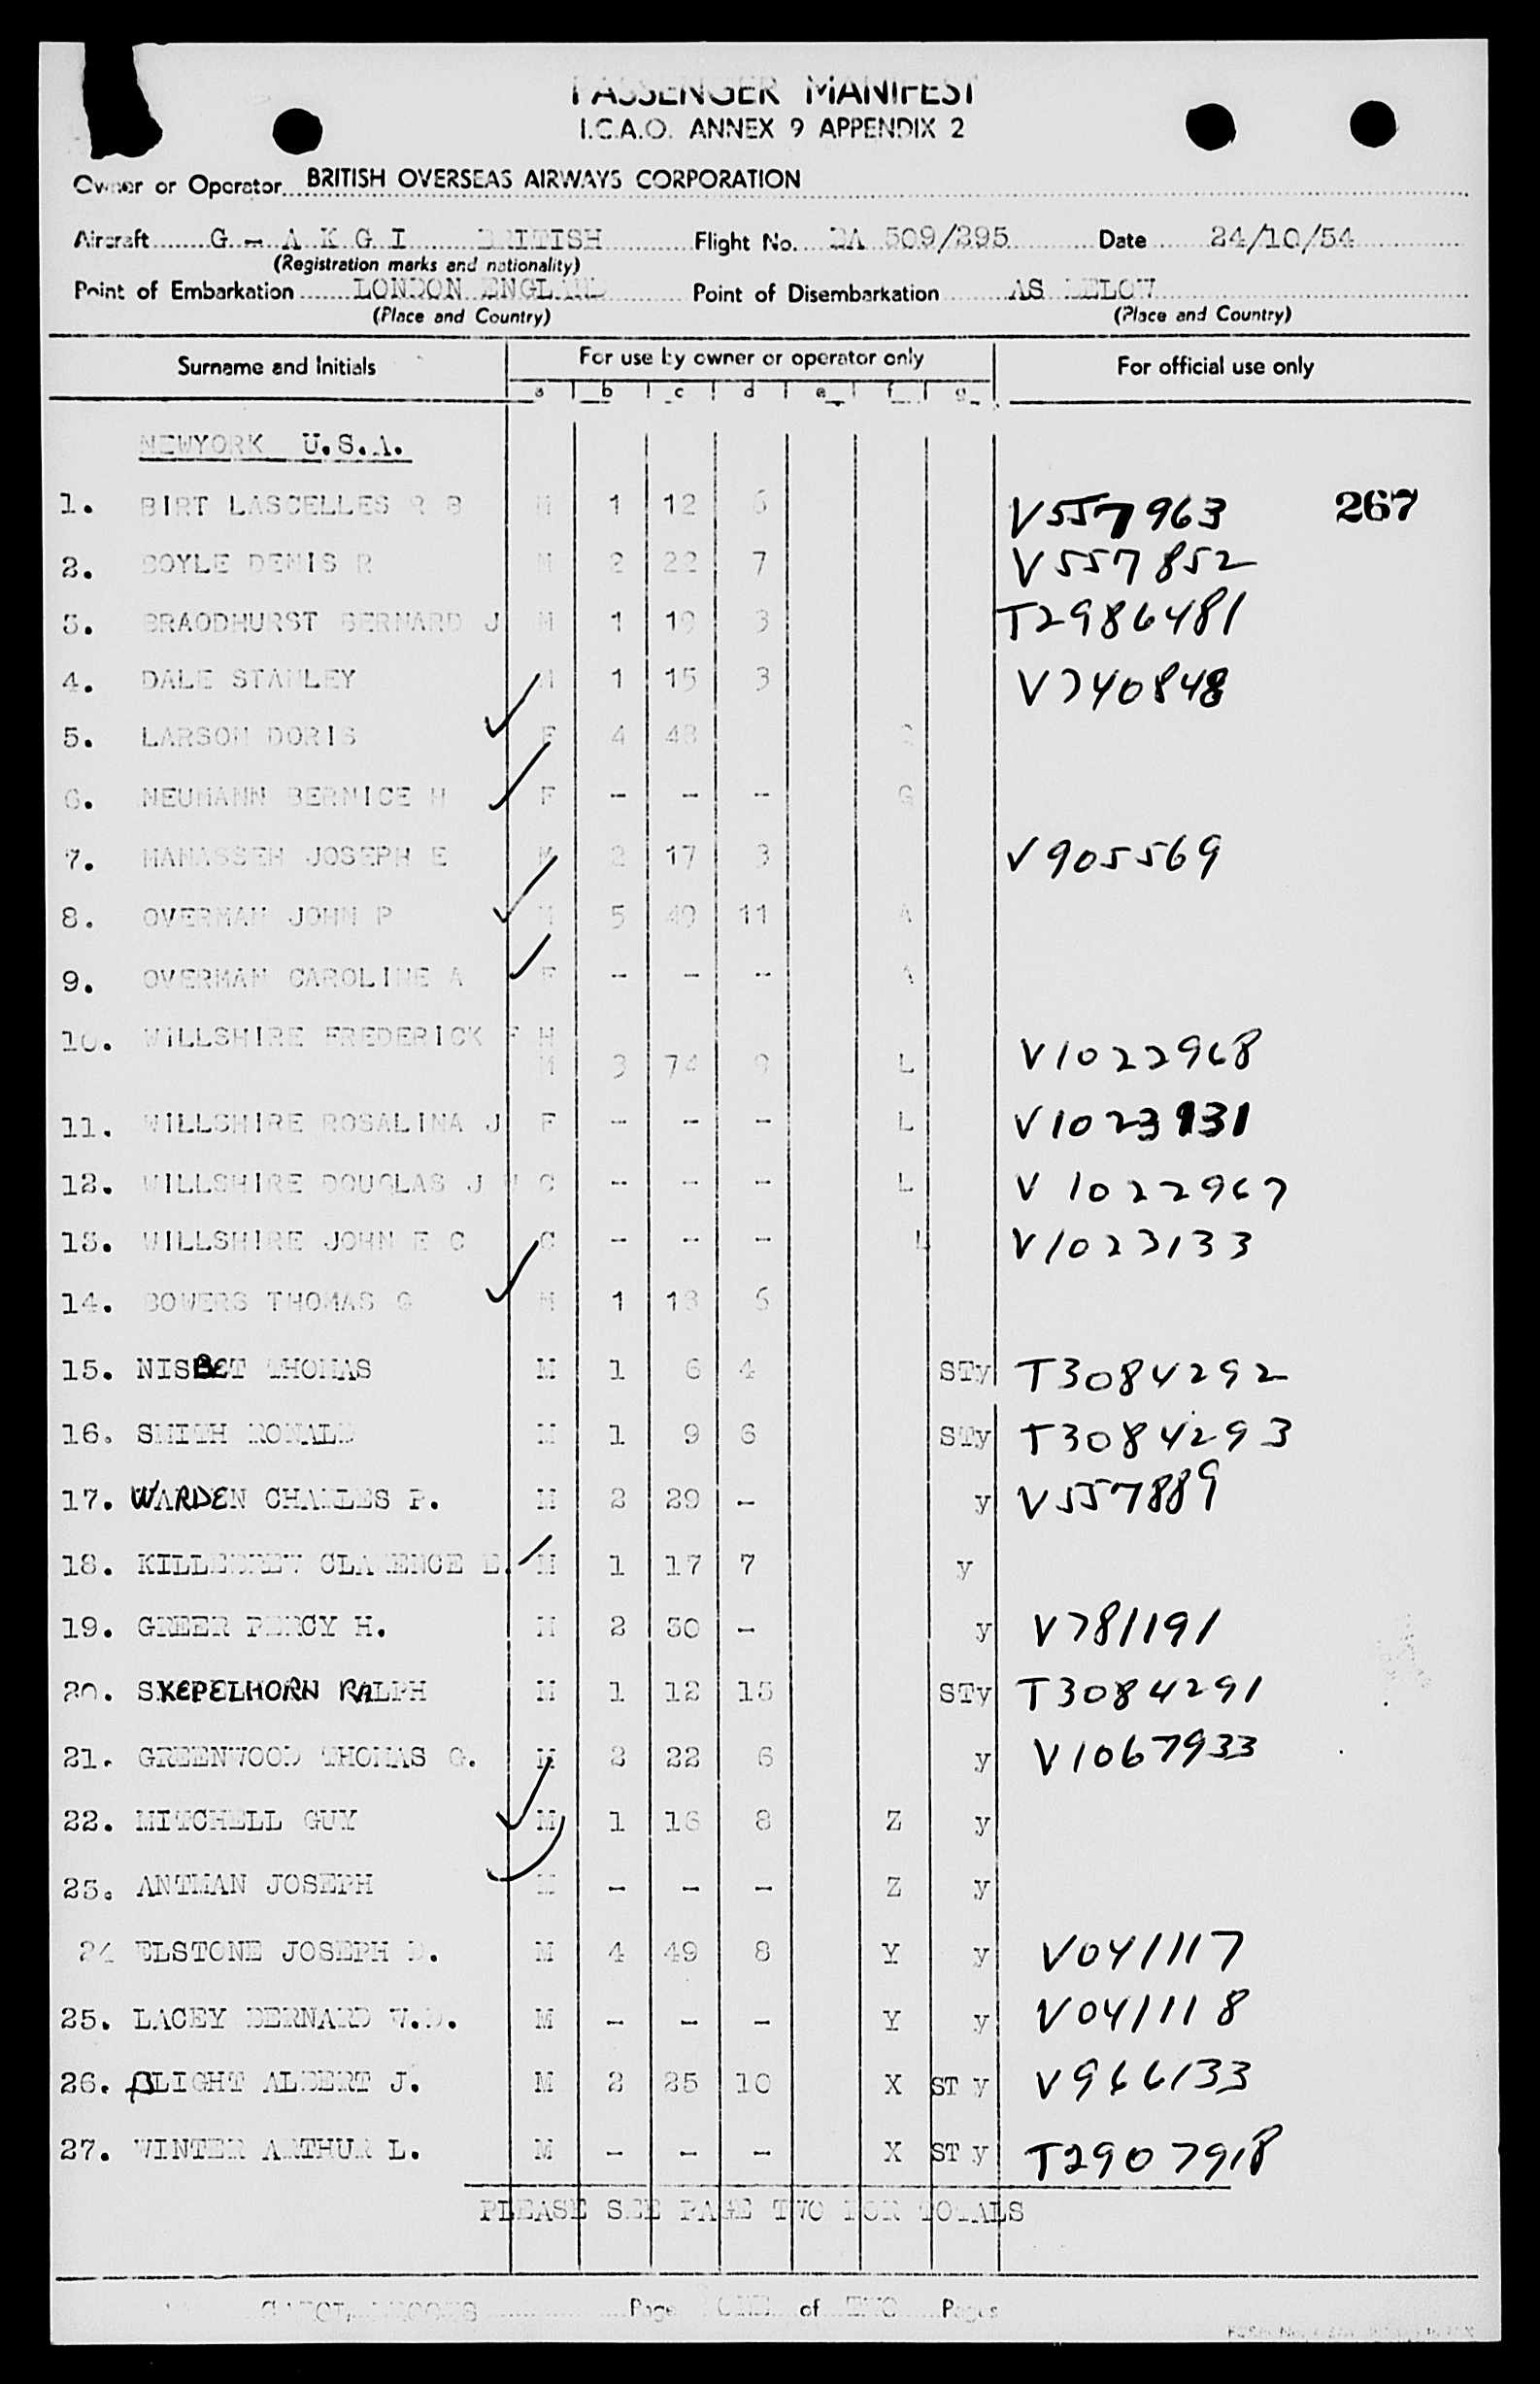 PASSENGER MANIFEST
I.C.A.O. ANNEX 9 APPENDIX 2
Owner or Operator BRITISH OVERSEAS AIRWAYS CORPORATION
Aircraft G - A K G I BRITISH Flight No. BA 509/295 Date 24/10/54
(Registration marks and nationality)
Point of Embarkation LONDON ENGLAND Point of Disembarkation AS BELOW
(Place and Country) (Place and Country)
Surname and Initials For use by owner or operator only For official use only
a b c d e f g
NEWYORK U.S.A.
1. BIRT LASCELLES R B M 1 12 6 V557963 267
2. BOYLE DENIS R M 2 22 7 V557852
3. BRAODHURST BERNARD J M 1 19 3 T2986481
4. DALE STANLEY M 1 15 3 V740848
5. LARSON DORIS F 4 48
6. NEUMANN BERNICE H F - - - G
7. MANASSEH JOSEPH E M 2 17 3 V905569
8. OVERMAN JOHN P M 5 49 11 A
9. OVERMAN CAROLINE A F - - - A
10. WILLSHIRE FREDERICK F H
M 3 74 9 L V1022968
11. WILLSHIRE ROSALINA J F - - - L V1023131
12. WILLSHIRE DOUGLAS J C - - - L V 1022967
13. WILLSHIRE JOHN E C C - - - L V1023133
14. BOWERS THOMAS G M 1 18 6
15. NISBET THOMAS M 1 6 4 STy T3084292
16. SMITH RONALD M 1 9 6 STy T3084293
17. WARDEN CHARLES P. M 2 29 - y V557889
18. CLARENCE E. M 1 17 7 y
19. GREER PERCY H. M 2 30 - y V781191
20. SKEPELHORN RALPH M 1 12 15 STy T3084291
21. GREENWOOD THOMAS G. M 2 22 6 y V1067933
22. MITCHELL GUY M 1 16 8 Z y
23. ANTMAN JOSEPH M - - - Z y
24 ELSTONE JOSEPH D. M 4 49 8 Y y V041117
25. LACEY BERNARD W.D. M - - - Y y V041118
26. BLIGHT ALBERT J. M 2 25 10 X ST y V966133
27. WINTER ARTHUR L. M - - - X ST y T2907918
PLEASE SEE PAGE TWO FOR TOTALS
Page ONE of TWO Pages